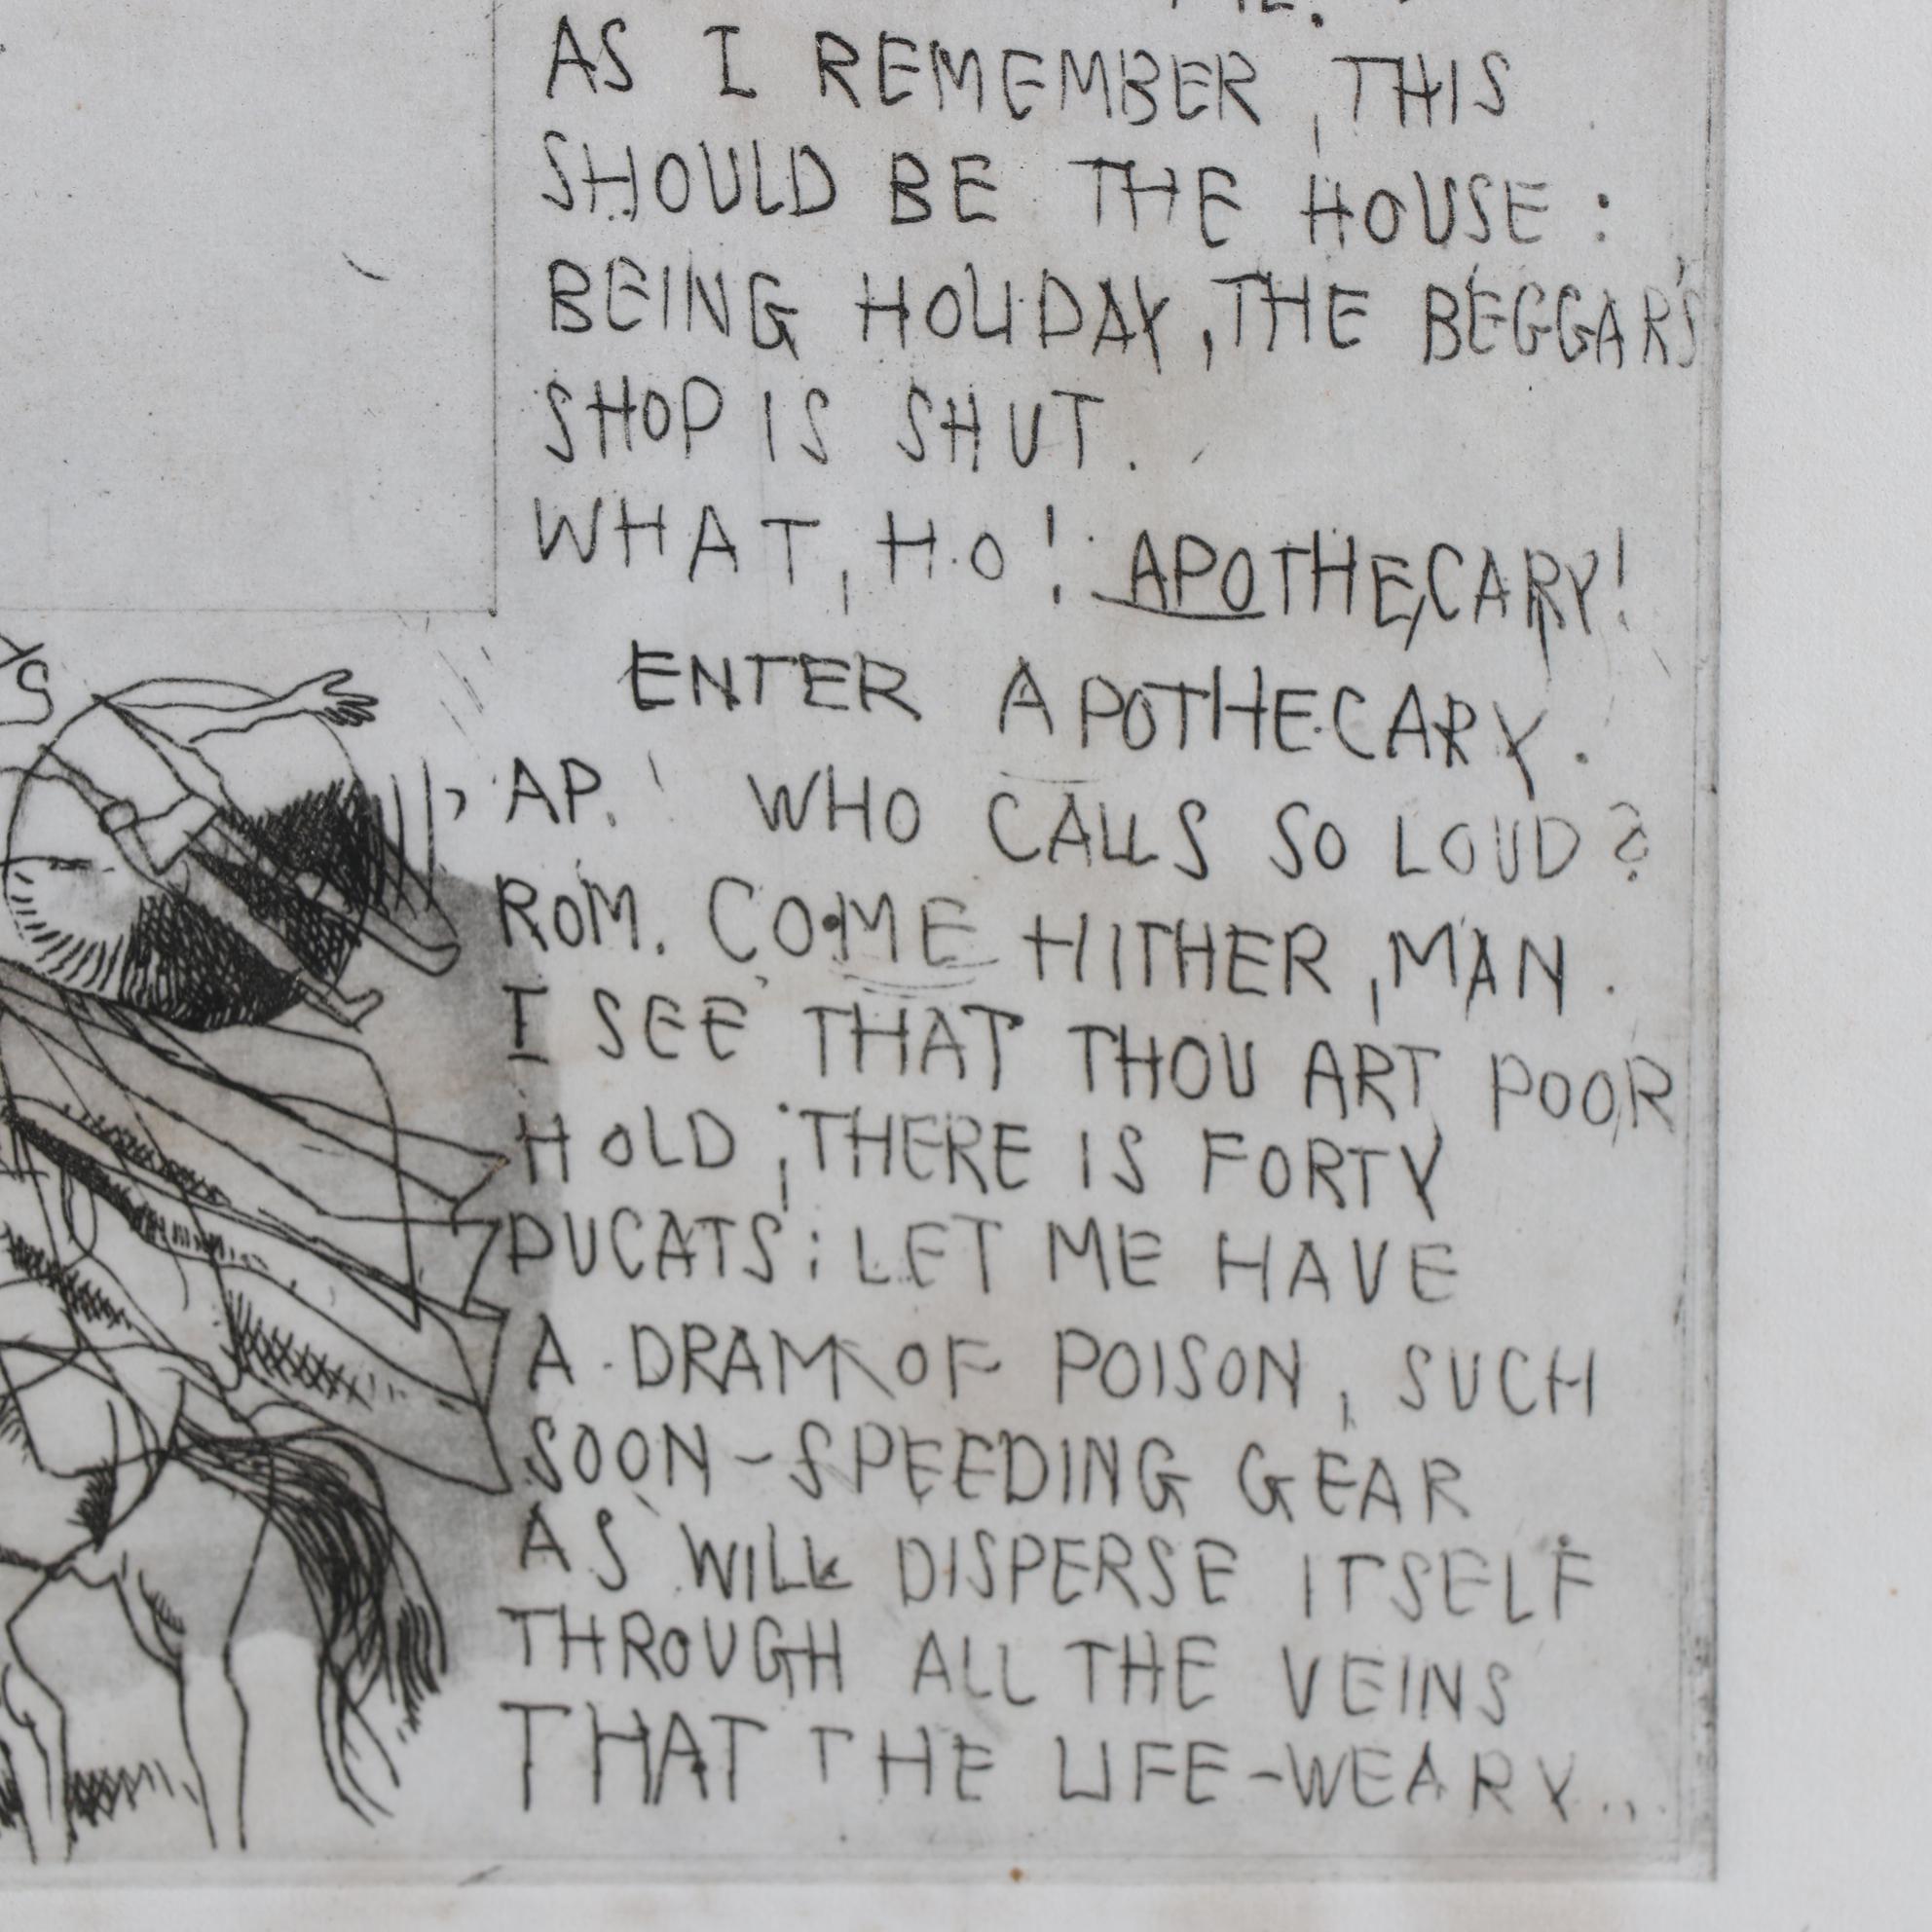 AS I REMEMBER, THIS
SHOULD BE THE HOUSE:
BEING HOLIDAY, THE BEGGAR'S
SHOP IS SHUT.
WHAT, HO! APOTHECARY!
ENTER APOTHECARY.
AP. WHO CALLS SO LOUD?
ROM. COME HITHER, MAN.
I SEE THAT THOU ART POOR
HOLD; THERE IS FORTY
DUCATS: LET ME HAVE
A DRAM OF POISON, SUCH
SOON-SPEEDING GEAR
AS WILL DISPERSE ITSELF
THROUGH ALL THE VEINS
THAT THE LIFE-WEARY..